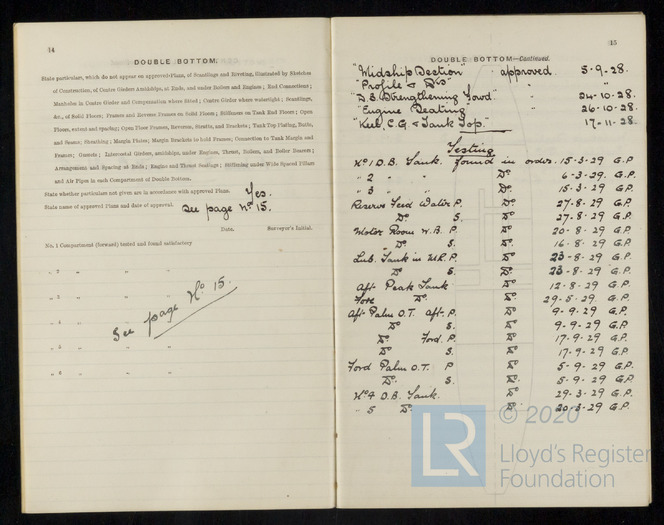 14
DOUBLE BOTTOM.
State particulars, which do not appear on approved Plans, of Scantlings and Riveting, illustrated by Sketches
of Construction, of Centre Girders Amidships, at Ends, and under Boilers and Engines; End Connections;
Manholes in Centre Girder and Compensation where fitted; Centre Girder where watertight; Scantlings,
&c., of Solid Floors; Frames and Reverse Frames on Solid Floors; Stiffeners on Tank End Floors; Open
Floors, extent and spacing; Open Floor Frames, Reverses, Struts, and Brackets; Tank Top Plating, Butts,
and Seams; Sheathing; Margin Plates; Margin Brackets to hold Frames; Connection to Tank Margin and
Frames; Gussets; Intercostal Girders, amidships, under Engines, Thrust, Boilers, and Boiler Bearers;
Arrangement and Spacing at Ends; Engine and Thrust Seatings; Stiffening under Wide Spaced Pillars
and Air Pipes in each Compartment of Double Bottom.
State whether particulars not given are in accordance with approved Plans. Yes.
State name of approved Plans and date of approval. See page No 15.
Date. Surveyor's Initial.
No. 1 Compartment (forward) tested and found satisfactory
" 2 " " "
" 3 " " "
" 4 " " "
" 5 " "
" 6 " "
See page No 15.
15
DOUBLE BOTTOM—Continued.
"Midship Section" approved. 5-9-28.
"Profile & Dks" " "
"D.B. Strengthening Forwd." " 24-10-28.
"Engine Seating" " 26-10-28.
"Keel, C.G. & Tank Top." 17-11-28.
Testing
No 1 D.B. Tank. found in order. 15-3-29 G.P.
" 2 " " Do 6-3-29. G.P.
" 3 " " Do. 15-3-29 G.P.
Reserve Feed Water P. Do 27-8-29 G.P.
Do S. Do 27-8-29 G.P.
Motor Room W.B. P. Do 20-8-29 G.P.
Do S. Do 16-8-29 G.P.
Lub. Tank in M.R. P. Do 23-8-29 G.P.
Do S. Do 23-8-29 G.P.
Aft Peak Tank Do 12-8-29 G.P.
Fore Do. Do 29-5-29 G.P.
Aft Palm O.T. aft. P. Do 9-9-29 G.P.
Do S. Do 9-9-29 G.P.
Do. Ford. P. Do 17-9-29 G.P.
Do. S. Do 17-9-29 G.P.
Ford Palm O.T. P Do 5-9-29 G.P.
Do. S. Do 5-9-29 G.P.
No 4 D.B. Tank. Do 29-3-29 G.P.
" 5 Do. Do 20-3-29 G.P.
© 2020
LR
Lloyd's Register
Foundation